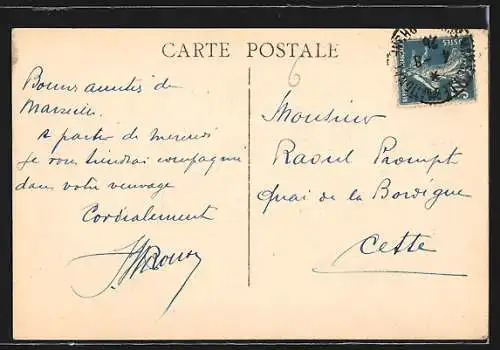 CARTE POSTALE
6
Bonnes amitiés de
Marseille.
A partir de mercredi
je vous tiendrai compagnie
dans votre veuvage
Cordialement
Monsieur
Raoul Prompt
Quai de la Bordigue
Cette